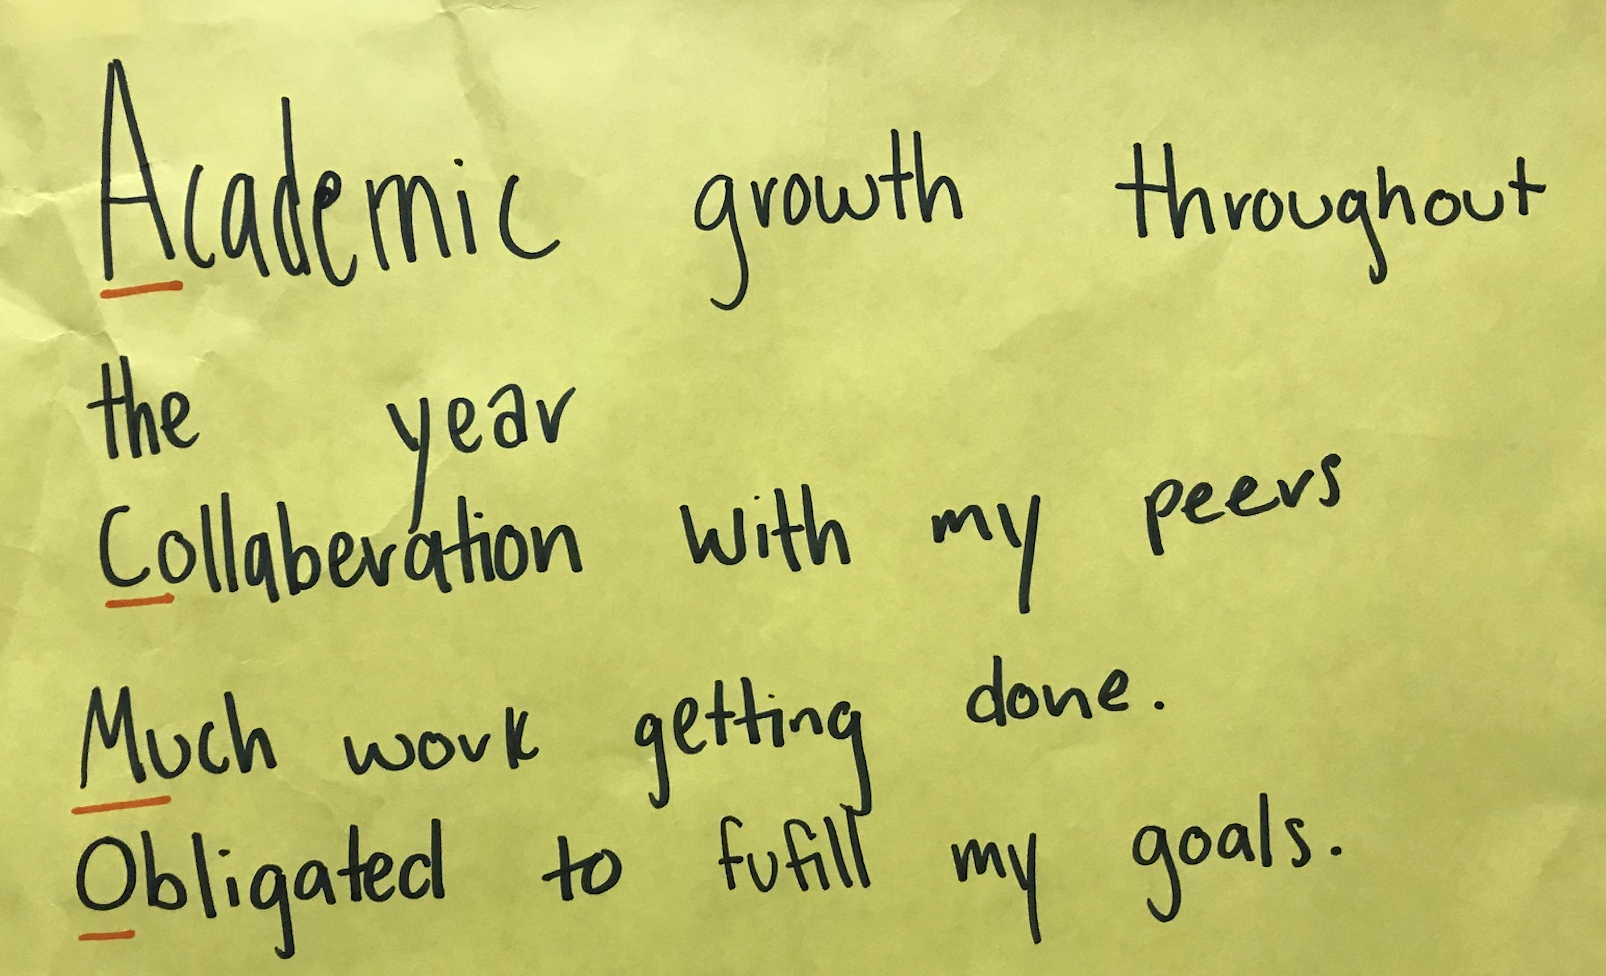 Academic growth throughout
the year
Collaberation with my peers
Much work getting done.
Obligated to fufill my goals.